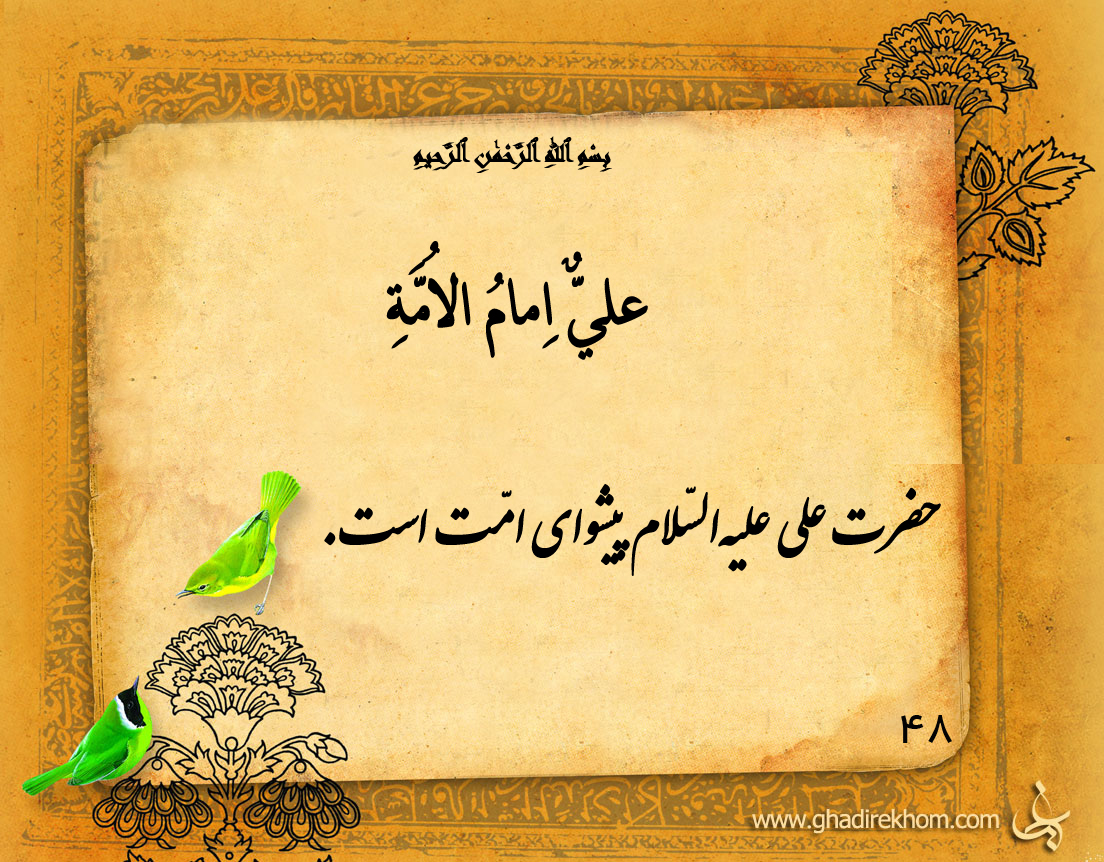 بِسْمِ ٱللَّهِ ٱلرَّحْمَٰنِ ٱلرَّحِيمِ
عليٌّ اِمامُ الاُمَّةِ
حضرت علی علیه‌السّلام پیشوای امّت است.
۴۸
www.ghadirekhom.com